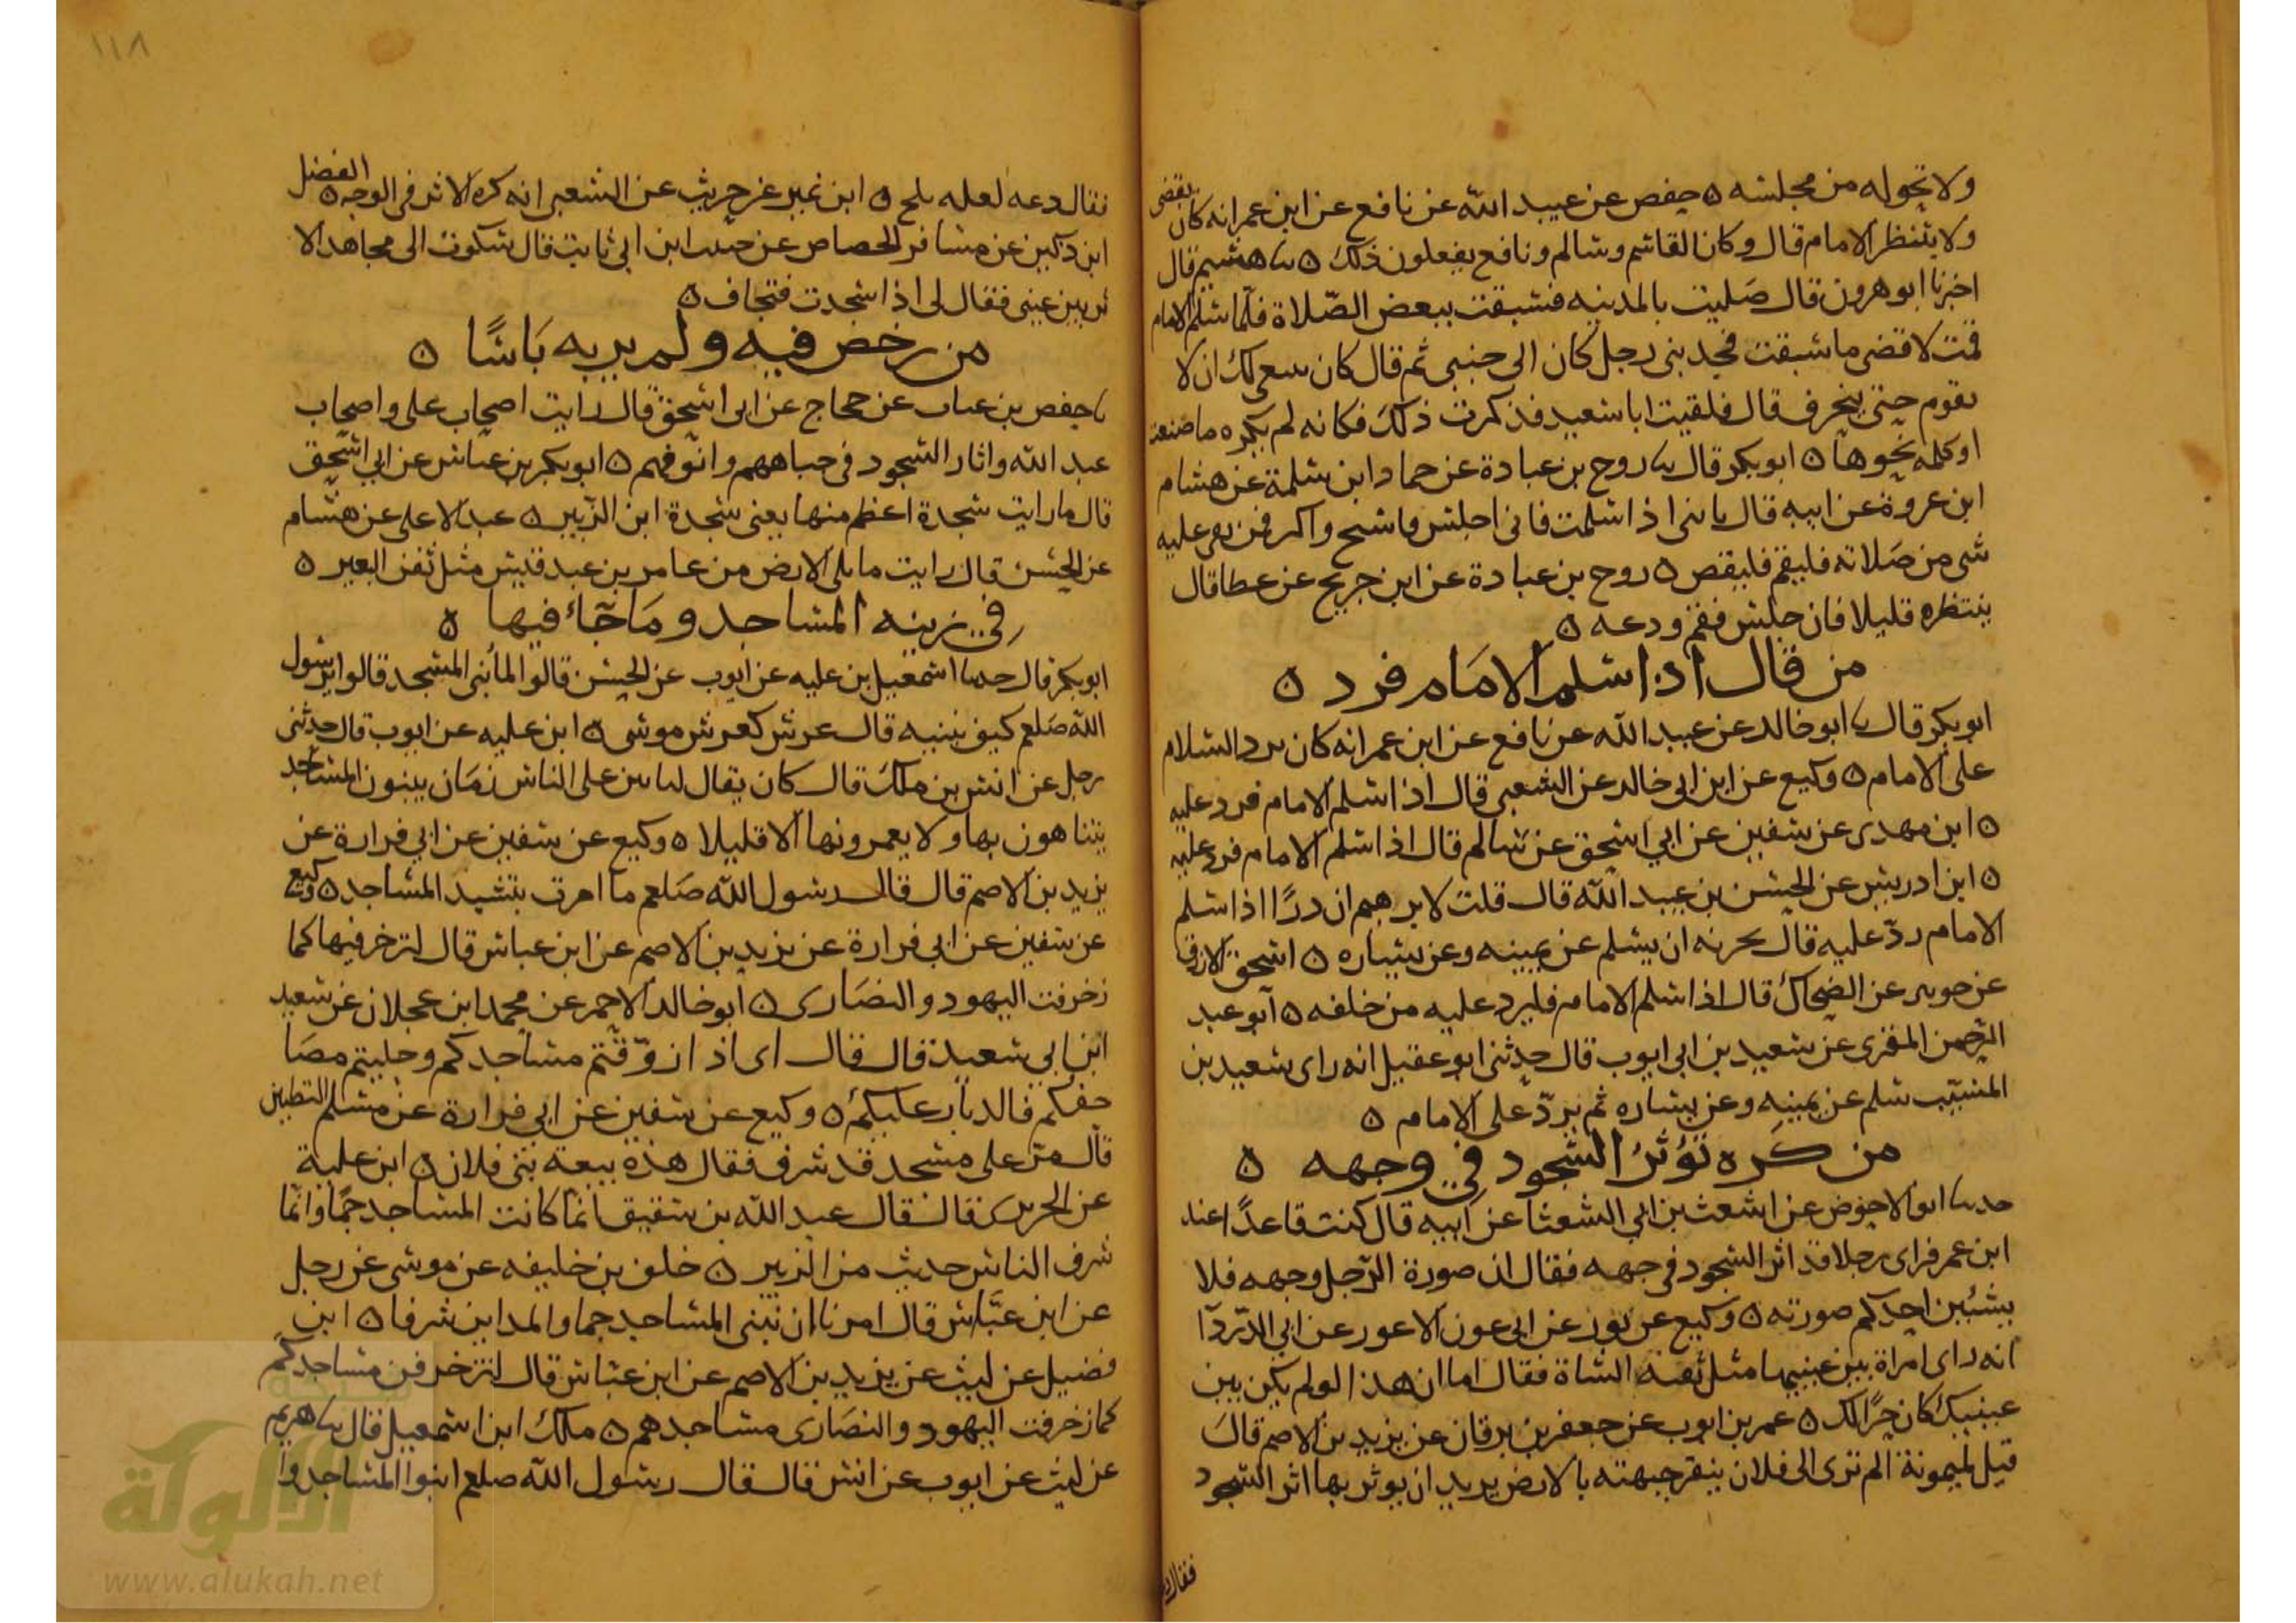 ولا تحوله من مجلسه ٥ حفص عن عبيد الله عن نافع عن ابن عمر انه كان يقضي
ولا ينتظر الامام قال وكان القاسم وسالم ونافع يفعلون ذلك ٥ هشيم قال
اخبرنا ابو هرون قال صليت بالمدينه فسبقت ببعض الصلاة فلما سلم الامام
قمت لاقضي ما سبقت فجذبني رجل كان الى جنبي ثم قال كان ينبغي لك ان لا
تقوم حتى ينحرف قال فلقيت ابا سعيد فذكرت ذلك فكانه لم يكره ما صنعت
او كلمه نحوها ٥ ابو بكر قال روح بن عبادة عن حماد ابن سلمة عن هشام
ابن عروة عن ابيه قال يا بني اذا سلمت فاني اجلس فاسبح واكبر فمن بقي عليه
شي من صلاته فليقم فليقض ٥ روح بن عبادة عن ابن جريج عن عطا قال
ينتظره قليلا فان جلس فقم ودعه ٥
من قال اذا سلم الامام فرد ٥
ابو بكر قال ابو خالد عن عبيد الله عن نافع عن ابن عمر انه كان يرد السلام
على الامام ٥ وكيع عن ابن ابي خالد عن الشعبي قال اذا سلم الامام فرد عليه
٥ ابن مهدي عن سفين عن ابي اسحق عن سالم قال اذا سلم الامام فرد عليه
٥ ابن ادريس عن الحسن بن عبيد الله قال قلت لابرهيم ان ذرا اذا سلم
الامام رد عليه قال يجزيه ان يسلم عن يمينه وعن يساره ٥ اسحق الازرق
عن جويبر عن الضحاك قال اذا سلم الامام فليرد عليه من خلفه ٥ ابو عبد
الرحمن المقري عن سعيد بن ابي ايوب قال حدثني ابو عقيل انه راى سعيد بن
المسيب سلم عن يمينه وعن يساره ثم يرد على الامام ٥
من كره تؤثر السجود في وجهه ٥
حدثنا ابو الاحوص عن اشعث بن ابي الشعثا عن ابيه قال كنت قاعدا عند
ابن عمر فراى رجلا قد اثر السجود في وجهه فقال ان صورة الرجل وجهه فلا
يشينن احدكم صورته ٥ وكيع عن ثور عن ابي عون الاعور عن ابي الدردا
انه راى امراة بين عينيها مثل ثفنة الشاة فقال اما ان هذا لو لم يكن بين
عينيك كان خيرا لك ٥ عمر بن ايوب عن جعفر بن برقان عن يزيد بن الاصم قال
قيل لميمونة الم تري الى فلان ينقر جبهته بالارض يريد ان يوثر بها اثر السجود
فقالت
١١٨
فقال دعه لعله يلج ٥ ابن نمير عن حريث عن الشعبي انه كره الاثر في الوجه ٥ الفضل
ابن دكين عن مسافر الجصاص عن حبيب ابن ابي ثابت قال شكوت الى مجاهد الا
ثر بين عيني فقال لي اذا سجدت فتجاف ٥
من رخص فيه ولم ير به باسا ٥
حفص بن غياث عن حجاج عن ابي اسحق قال رايت اصحاب علي واصحاب
عبد الله واثار السجود في جباههم وانوفهم ٥ ابو بكر بن عياش عن ابي اسحق
قال ما رايت سجدة اعظم منها يعني سجدة ابن الزبير ٥ عبد الاعلى عن هشام
عن الحسن قال رايت ما يلي الارض من عامر بن عبد قيس مثل ثفن البعير ٥
في زينه المساجد وما جاء فيها ٥
ابو بكر قال حدثنا اسمعيل بن عليه عن ايوب عن الحسن قال لما بني المسجد قالوا يرسول
الله صلعم كيف نبنيه قال عرش كعرش موسى ٥ ابن عليه عن ايوب قال حدثني
رجل عن انس بن ملك قال كان يقال لياتين على الناس زمان يبنون المساجد
يتباهون بها ولا يعمرونها الا قليلا ٥ وكيع عن سفين عن ابي فزارة عن
يزيد بن الاصم قال قال رسول الله صلعم ما امرت بتشييد المساجد ٥ وكيع
عن سفين عن ابي فزارة عن يزيد بن الاصم عن ابن عباس قال لتزخرفنها كما
زخرفت اليهود والنصارى ٥ ابو خالد الاحمر عن محمد ابن عجلان عن سعيد
ابن ابي سعيد قال قال ابي اذا زوقتم مساجدكم وحليتم مصا
حفكم فالدبار عليكم ٥ وكيع عن سفين عن ابي فزارة عن مسلم البطين
قال مر على مسجد قد شرف فقال هذه بيعة بني فلان ٥ ابن علية
عن الجريري قال قال عبد الله بن شقيق انما كانت المساجد جما وانما
شرف الناس حديث من الزبير ٥ خلف بن خليفه عن موسى عن رجل
عن ابن عباس قال امرنا ان نبني المساجد جما والمداين شرفا ٥ ابن
فضيل عن ليث عن يزيد بن الاصم عن ابن عباس قال لتزخرفن مساجدكم
كما زخرفت اليهود والنصارى مساجدهم ٥ ملك ابن اسمعيل قال هريم
عن ليث عن ايوب عن انس قال قال رسول الله صلعم ابنوا المساجد وا
شبكة
الألوكة
www.alukah.net